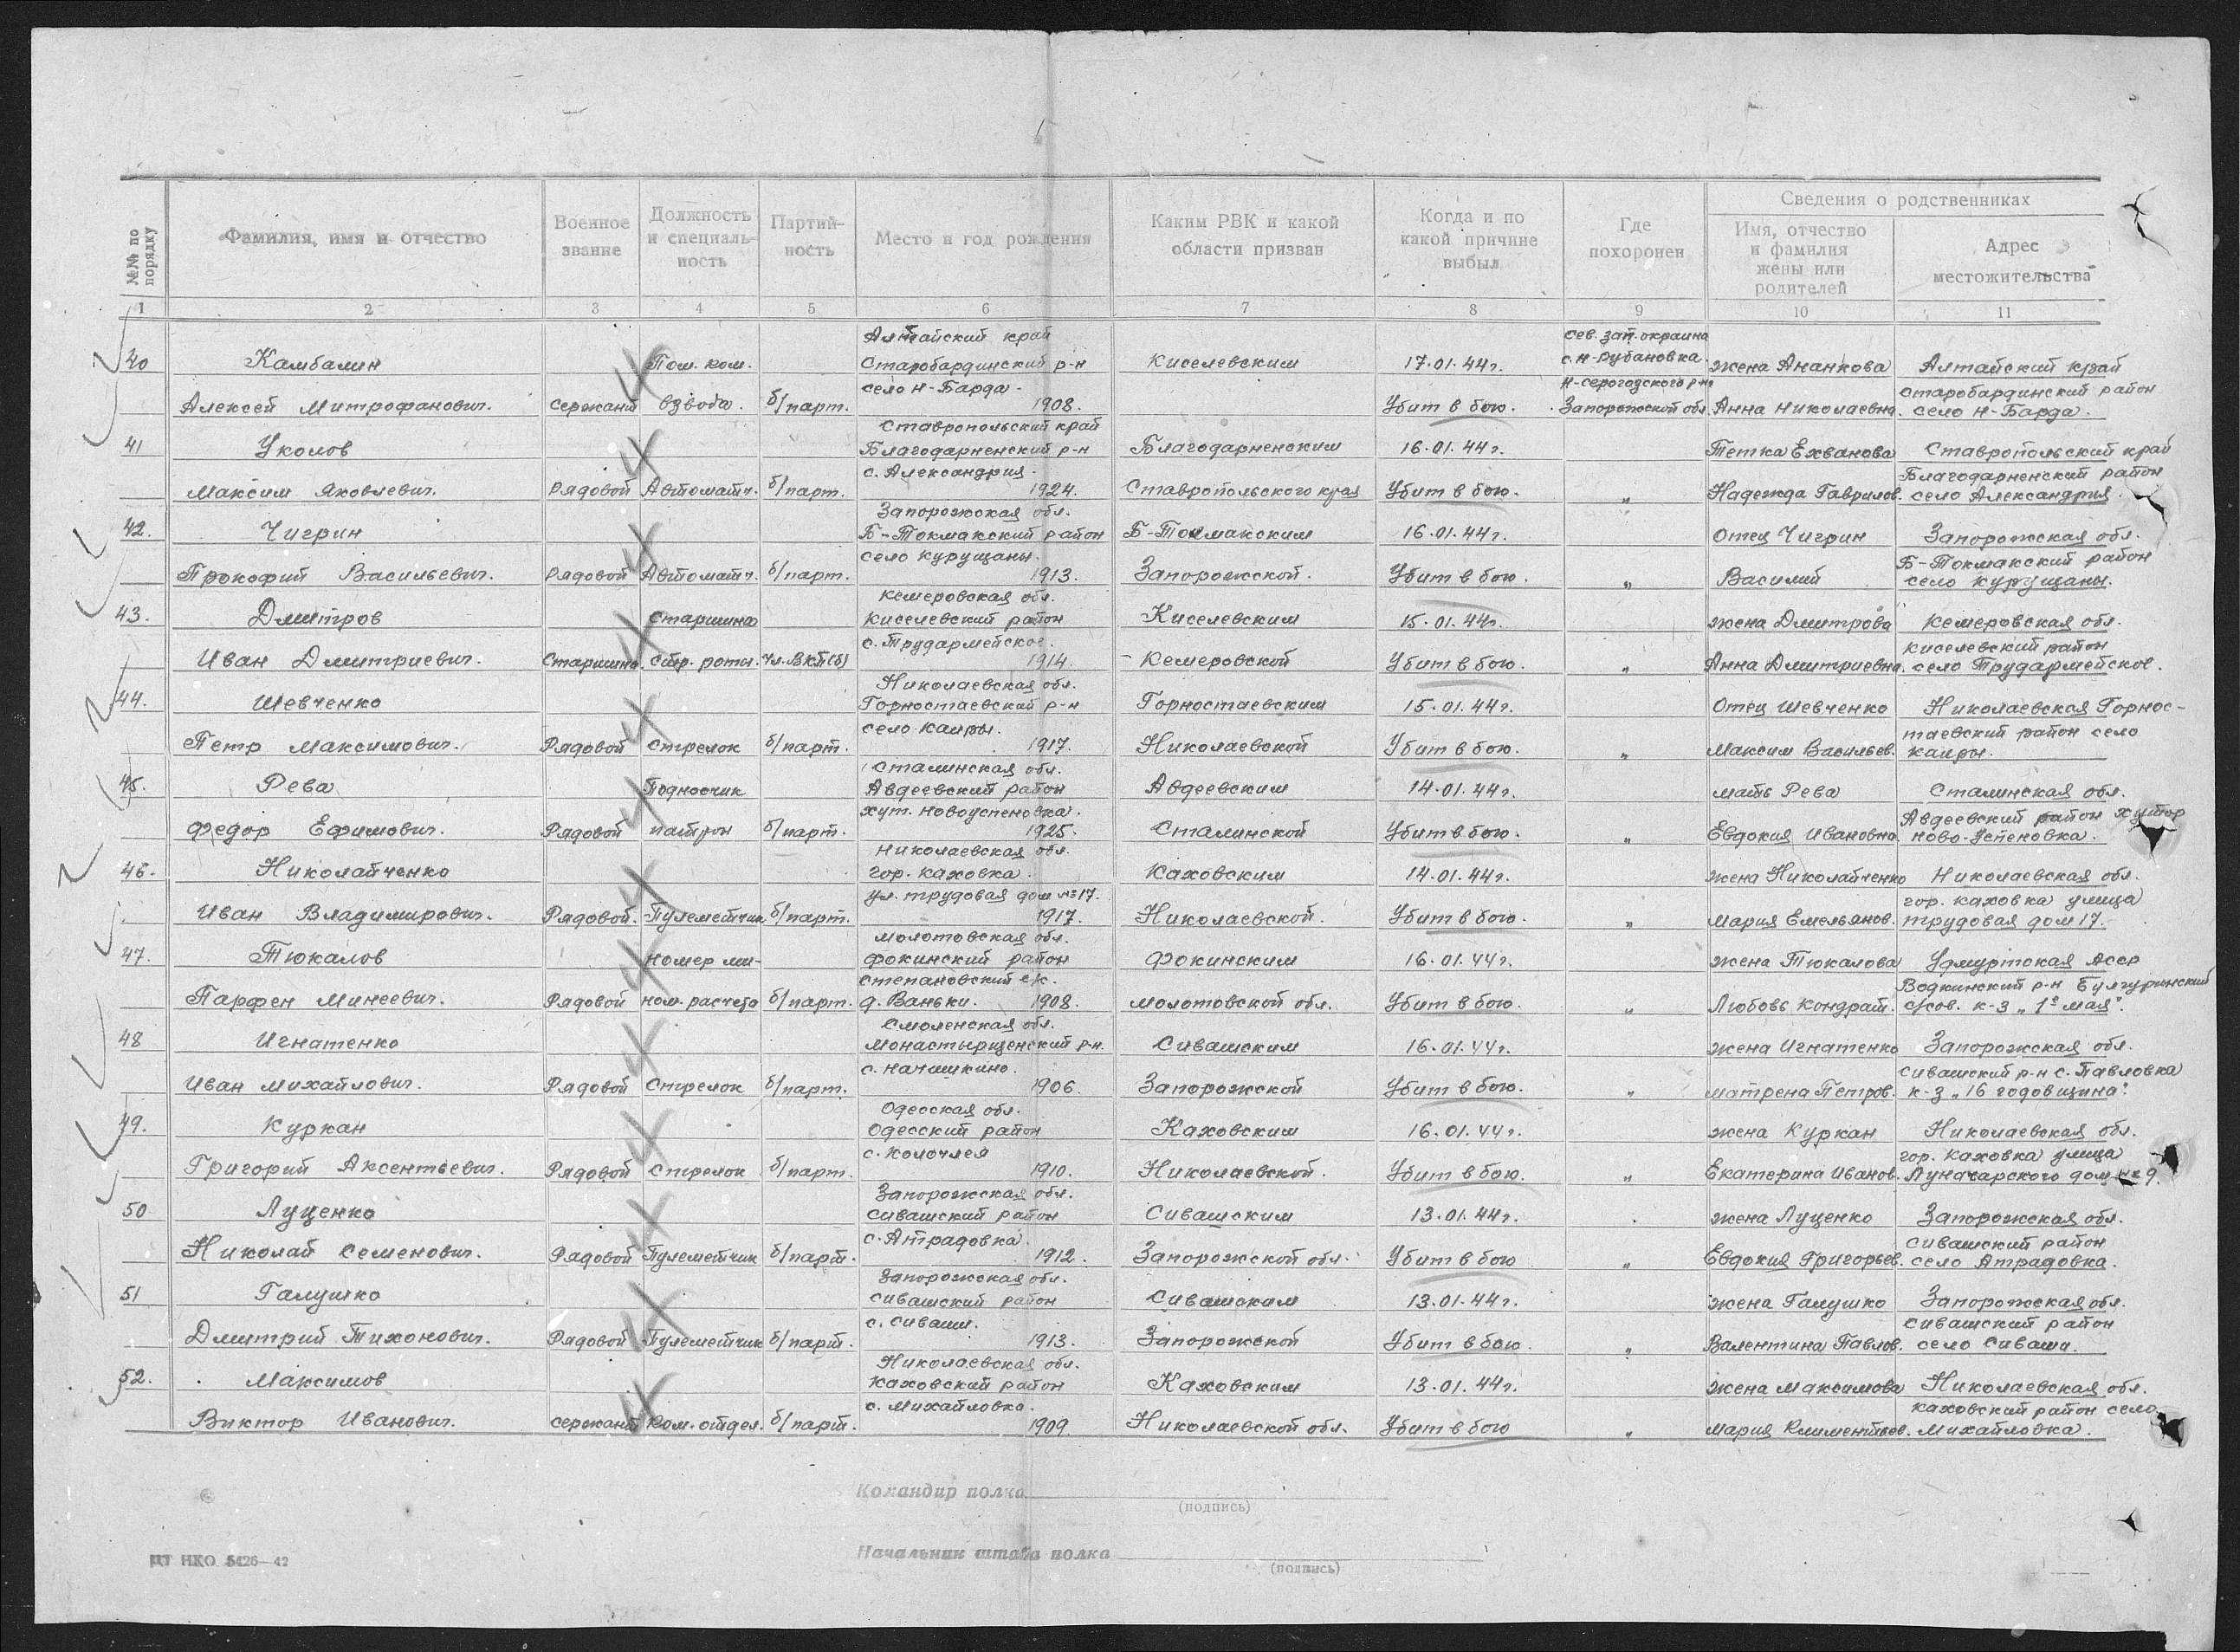 №№ по порядку
Фамилия, имя и отчество
Военное звание
Должность и специаль-ность
Партий-ность
Место и год рождения
Каким РВК и какой области призван
Когда и по какой причине выбыл
Где похоронен
Сведения о родственниках
Имя, отчество и фамилия жены или родителей
Адрес местожительства
1 2 3 4 5 6 7 8 9 10 11
Алтайский край сев. зап. окраина
40 Камбалин Пом. ком. Старобардинский р-н Киселевским 17.01.44г. с. Н-Рубановка. жена Ананкова Алтайский край
село Н-Барда Н-серогозского р-на Старобардинский район
Алексей Митрофанович. сержант взвода. б/парт. 1908. Убит в бою. Запорожской обл. Анна Николаевна. село Н-Барда.
Ставропольский край
41 Уколов Благодарненский р-н Благодарненским 16.01.44г. Тетка Ехванова Ставропольский край
с. Александрия. Благодарненский район
Максим Яковлевич. Рядовой Автоматч. б/парт. 1924. Ставропольского края Убит в бою. „ Надежда Гаврилов. село Александрия.
Запорожская обл.
42. Чигрин Б-Токмакский район Б-Токмакским 16.01.44г. Отец Чигрин Запорожская обл.
село Курущаны. Б-Токмакский район
Прокофий Васильевич. Рядовой Автоматч. б/парт. 1913. Запорожской. Убит в бою. „ Василий село Курущаны.
Кемеровская обл.
43. Дмитров Старшина Киселевский район Киселевским 15.01.44г. жена Дмитрова Кемеровская обл.
с. Трудармейское. Киселевский район
Иван Дмитриевич. Старшина. стр. роты. чл. ВКП(б) 1914. Кемеровской Убит в бою. „ Анна Дмитриевна. село Трудармейское.
Николаевская обл.
44. Шевченко Горностаевский р-н Горностаевским 15.01.44г. Отец Шевченко Николаевская Горнос-
село Каиры. таевский район село
Петр Максимович. Рядовой Стрелок б/парт. 1917. Николаевской Убит в бою. „ Максим Васильев. Каиры.
Сталинская обл.
45. Рева Подносчик Авдеевский район Авдеевским 14.01.44г. мать Рева Сталинская обл.
хут. Новоуспеновка. Авдеевский район хутор
Федор Ефимович. Рядовой патрон б/парт. 1925. Сталинской Убит в бою. „ Евдокия Ивановна. Ново-Успеновка.
Николаевская обл.
46. Николайченко гор. Каховка. Каховским 14.01.44г. жена Николайченко Николаевская обл.
ул. трудовая дом №17. гор. Каховка улица
Иван Владимирович. Рядовой. Пулеметчик б/парт. 1917. Николаевской. Убит в бою. „ Мария Емельянов. трудовая дом 17.
Молотовская обл.
47. Тюкалов номер ми- Фокинский район Фокинским 16.01.44г. жена Тюкалова Удмуртская Асср
Степановский с/с. Водкинский р-н Булгуринский
Парфен Минеевич. Рядовой ном. расчета б/парт. д. Ваньки. 1908. Молотовской обл. Убит в бою. „ Любовь Кондрат. с/сов. к-з „1е мая".
Смоленская обл.
48 Игнатенко Монастырщенский р-н. Сивашским 16.01.44г. жена Игнатенко Запорожская обл.
с. Начишкино. Сивашский р-н с. Павловка
Иван Михайлович. Рядовой Стрелок б/парт. 1906. Запорожской Убит в бою. „ Матрена Петров. к-з „16 годовщина".
Одесская обл.
49. Куркан Одесский район Каховским 16.01.44г. жена Куркан Николаевская обл.
с. Колочлея гор. Каховка улица
Григорий Аксентьевич. Рядовой Стрелок б/парт. 1910. Николаевской. Убит в бою. „ Екатерина Иванов. Луначарского дом №9.
Запорожская обл.
50 Луценко Сивашский район Сивашским 13.01.44г. жена Луценко Запорожская обл.
с. Атрадовка. Сивашский район
Николай Семенович. Рядовой Пулеметчик б/парт. 1912. Запорожской обл. Убит в бою „ Евдокия Григорьев. село Атрадовка.
Запорожская обл.
51 Галушко Сивашский район Сивашским 13.01.44г. жена Галушко Запорожская обл.
с. Сиваши. Сивашский район
Дмитрий Тихонович. Рядовой Пулеметчик б/парт. 1913. Запорожской Убит в бою. „ Валентина Павлов. село Сиваши.
Николаевская обл.
52. Максимов Каховский район Каховским 13.01.44г. жена Максимова Николаевская обл.
с. Михайловка. Каховский район село
Виктор Иванович. сержант Ком. отдел. б/парт. 1909. Николаевской обл. Убит в бою „ Мария Климентьев. Михайловка.
Командир полка
(подпись)
Начальник штаба полка
(подпись)
ЦТ НКО 5426—42